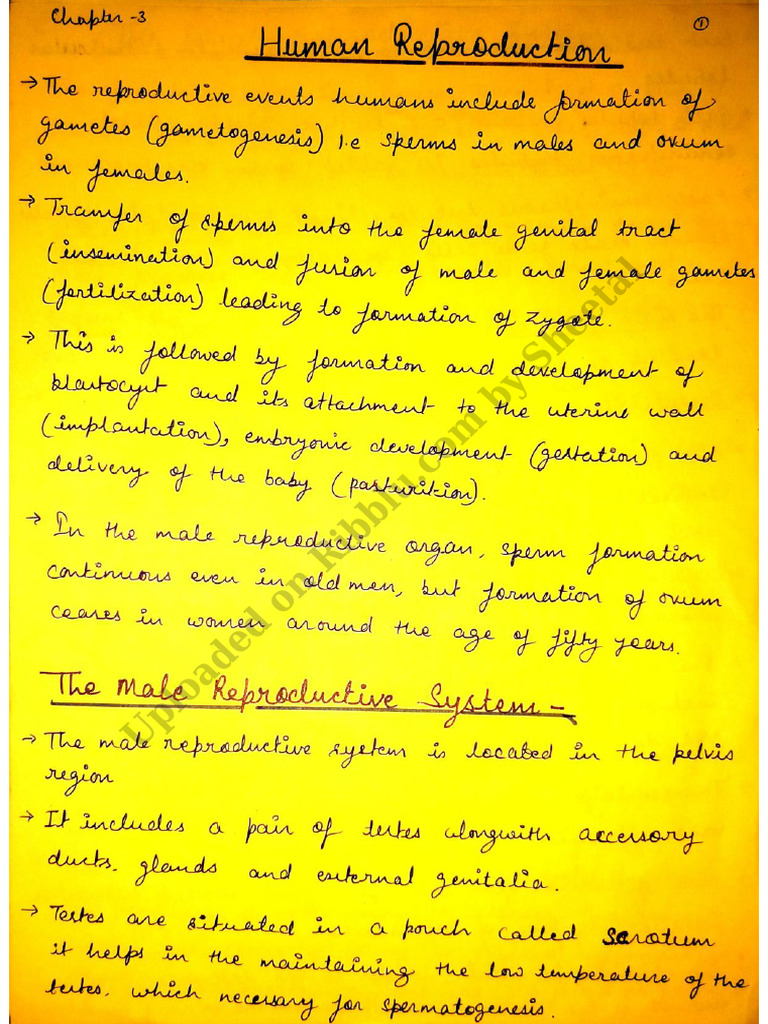 Chapter -3
1
Human Reproduction
→ The reproductive events humans include formation of
gametes (gametogenesis) i.e sperms in males and ovum
in females.
→ Transfer of sperms into the female genital tract
(insemination) and fusion of male and female gametes
(fertilization) leading to formation of zygote.
→ This is followed by formation and development of
blastocyst and its attachment to the uterine wall
(implantation), embryonic development (gestation) and
delivery of the baby (pasturition).
→ In the male reproductive organ, sperm formation
continuous even in old men, but formation of ovum
ceases in women around the age of fifty years.
The Male Reproductive System -
→ The male reproductive system is located in the pelvis
region
→ It includes a pair of testes alongwith accessory
ducts, glands and external genitalia.
→ Testes are situated in a pouch called Scrotum
it helps in the maintaining the low temperature of the
testes. which necessary for spermatogenesis.
Uploaded on Kibblu.com by Sheetal